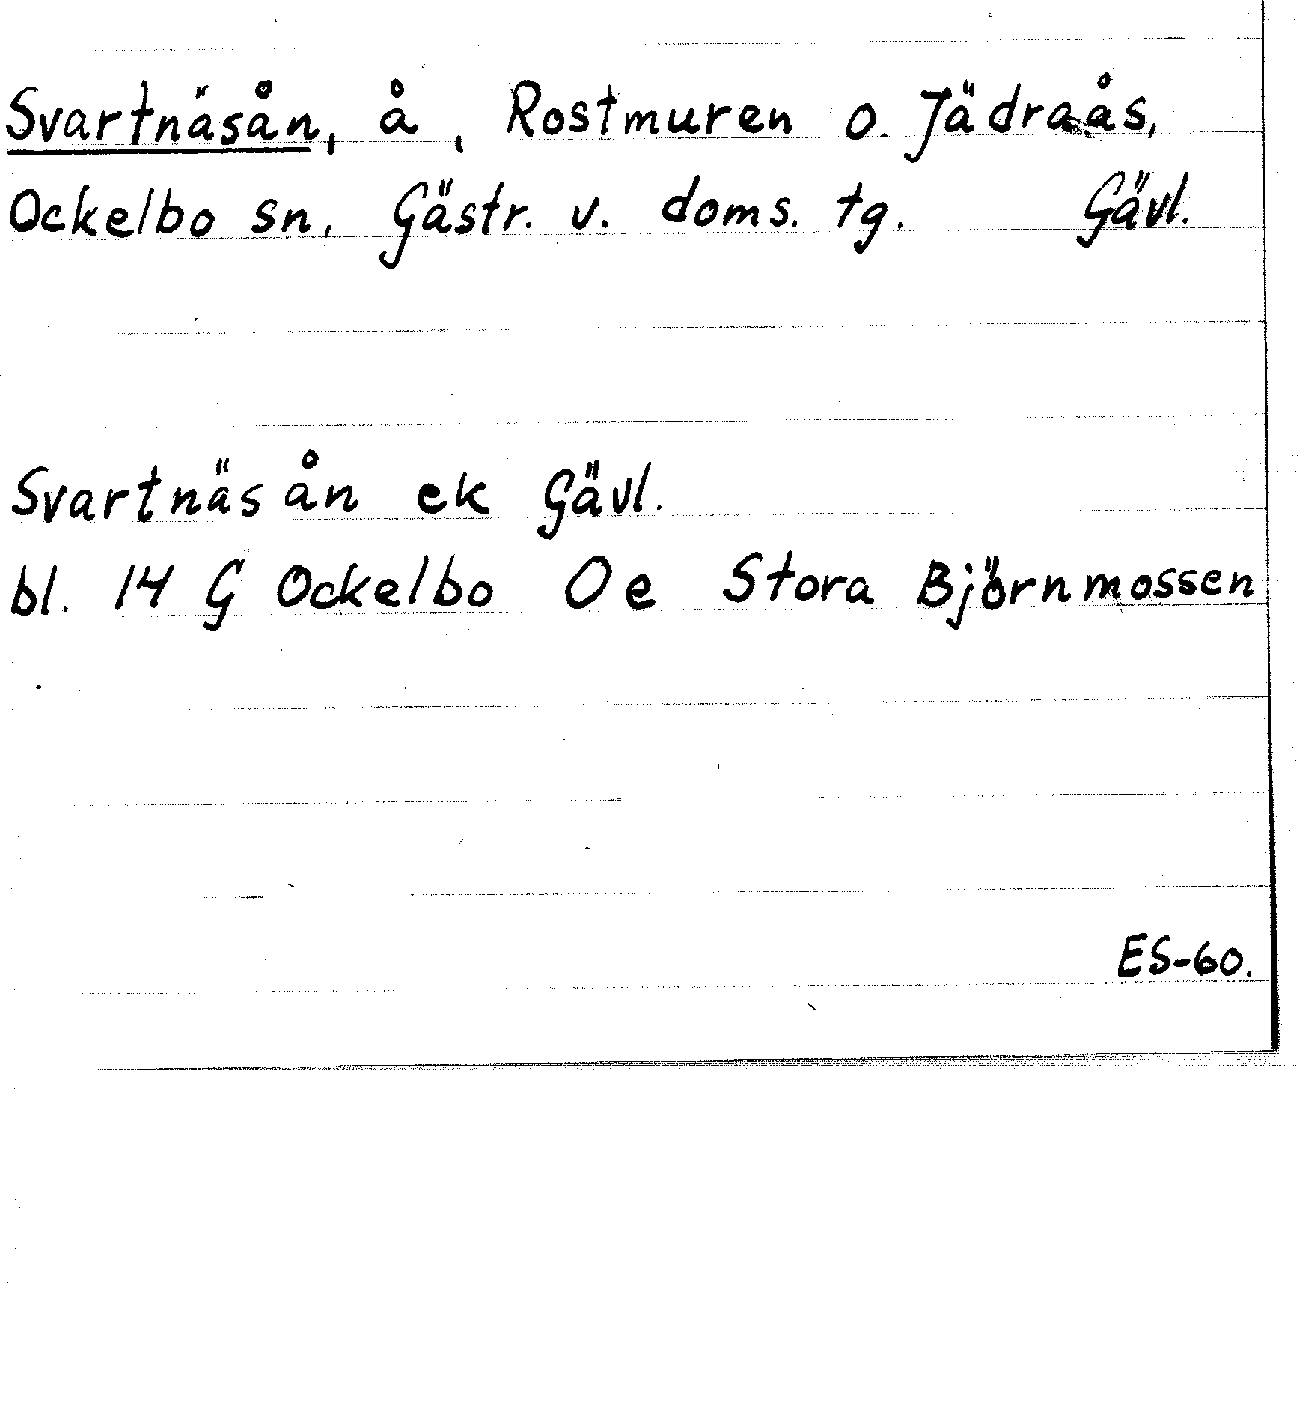 Svartnäsån, å, Rostmuren o. Jädraås,
Ockelbo sn, Gästr. v. doms. tg. Gävl.
Svartnäsån ek Gävl.
bl. 14 G Ockelbo Oe Stora Björnmossen
ES-60.